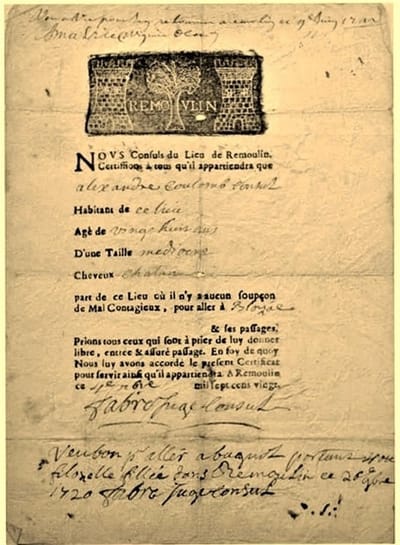 REMOULIN
NOVS Consuls du Lieu de Remoulin,
Certifions à tous qu'il appartiendra que
alexandre coulomb consul
Habitant de ce lieu
Agé de vingt huit ans
D'une Taille mediocre
Cheveux chatan
part de ce Lieu où il n'y a aucun soupçon
de Mal Contagieux, pour aller à
& ses passages.
Prions tous ceux qui sont à prier de luy donner
libre, entrée & assuré passage. En foy de quoy
Nous luy avons accordé le present Certificat
pour servir ainsi qu'il appartiendra. A Remoulin
ce 4e mil sept cens vingt
fabre juge Consul
Veu bon p aller a portant
filozelle dans Remoulin ce 26
1720 fabre juge Consul